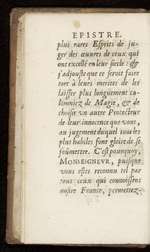 EPISTRE.
plus rares Esprits de ju-
ger des œuvres de ceux qui
ont excellé en leur siecle: &
j'adjouste que ce seroit faire
tort à leurs merites de les
laisser plus longuement ca-
lomniez de Magie, & de
choisir un autre Protecteur
de leur innocence que vous,
au jugement duquel tous les
plus habiles font gloire de se
soûmettre. C'est pourquoy,
MONSEIGNEUR, puisque
vous estes reconnu tel par
tous ceux qui connoissent
nostre France, permettez-